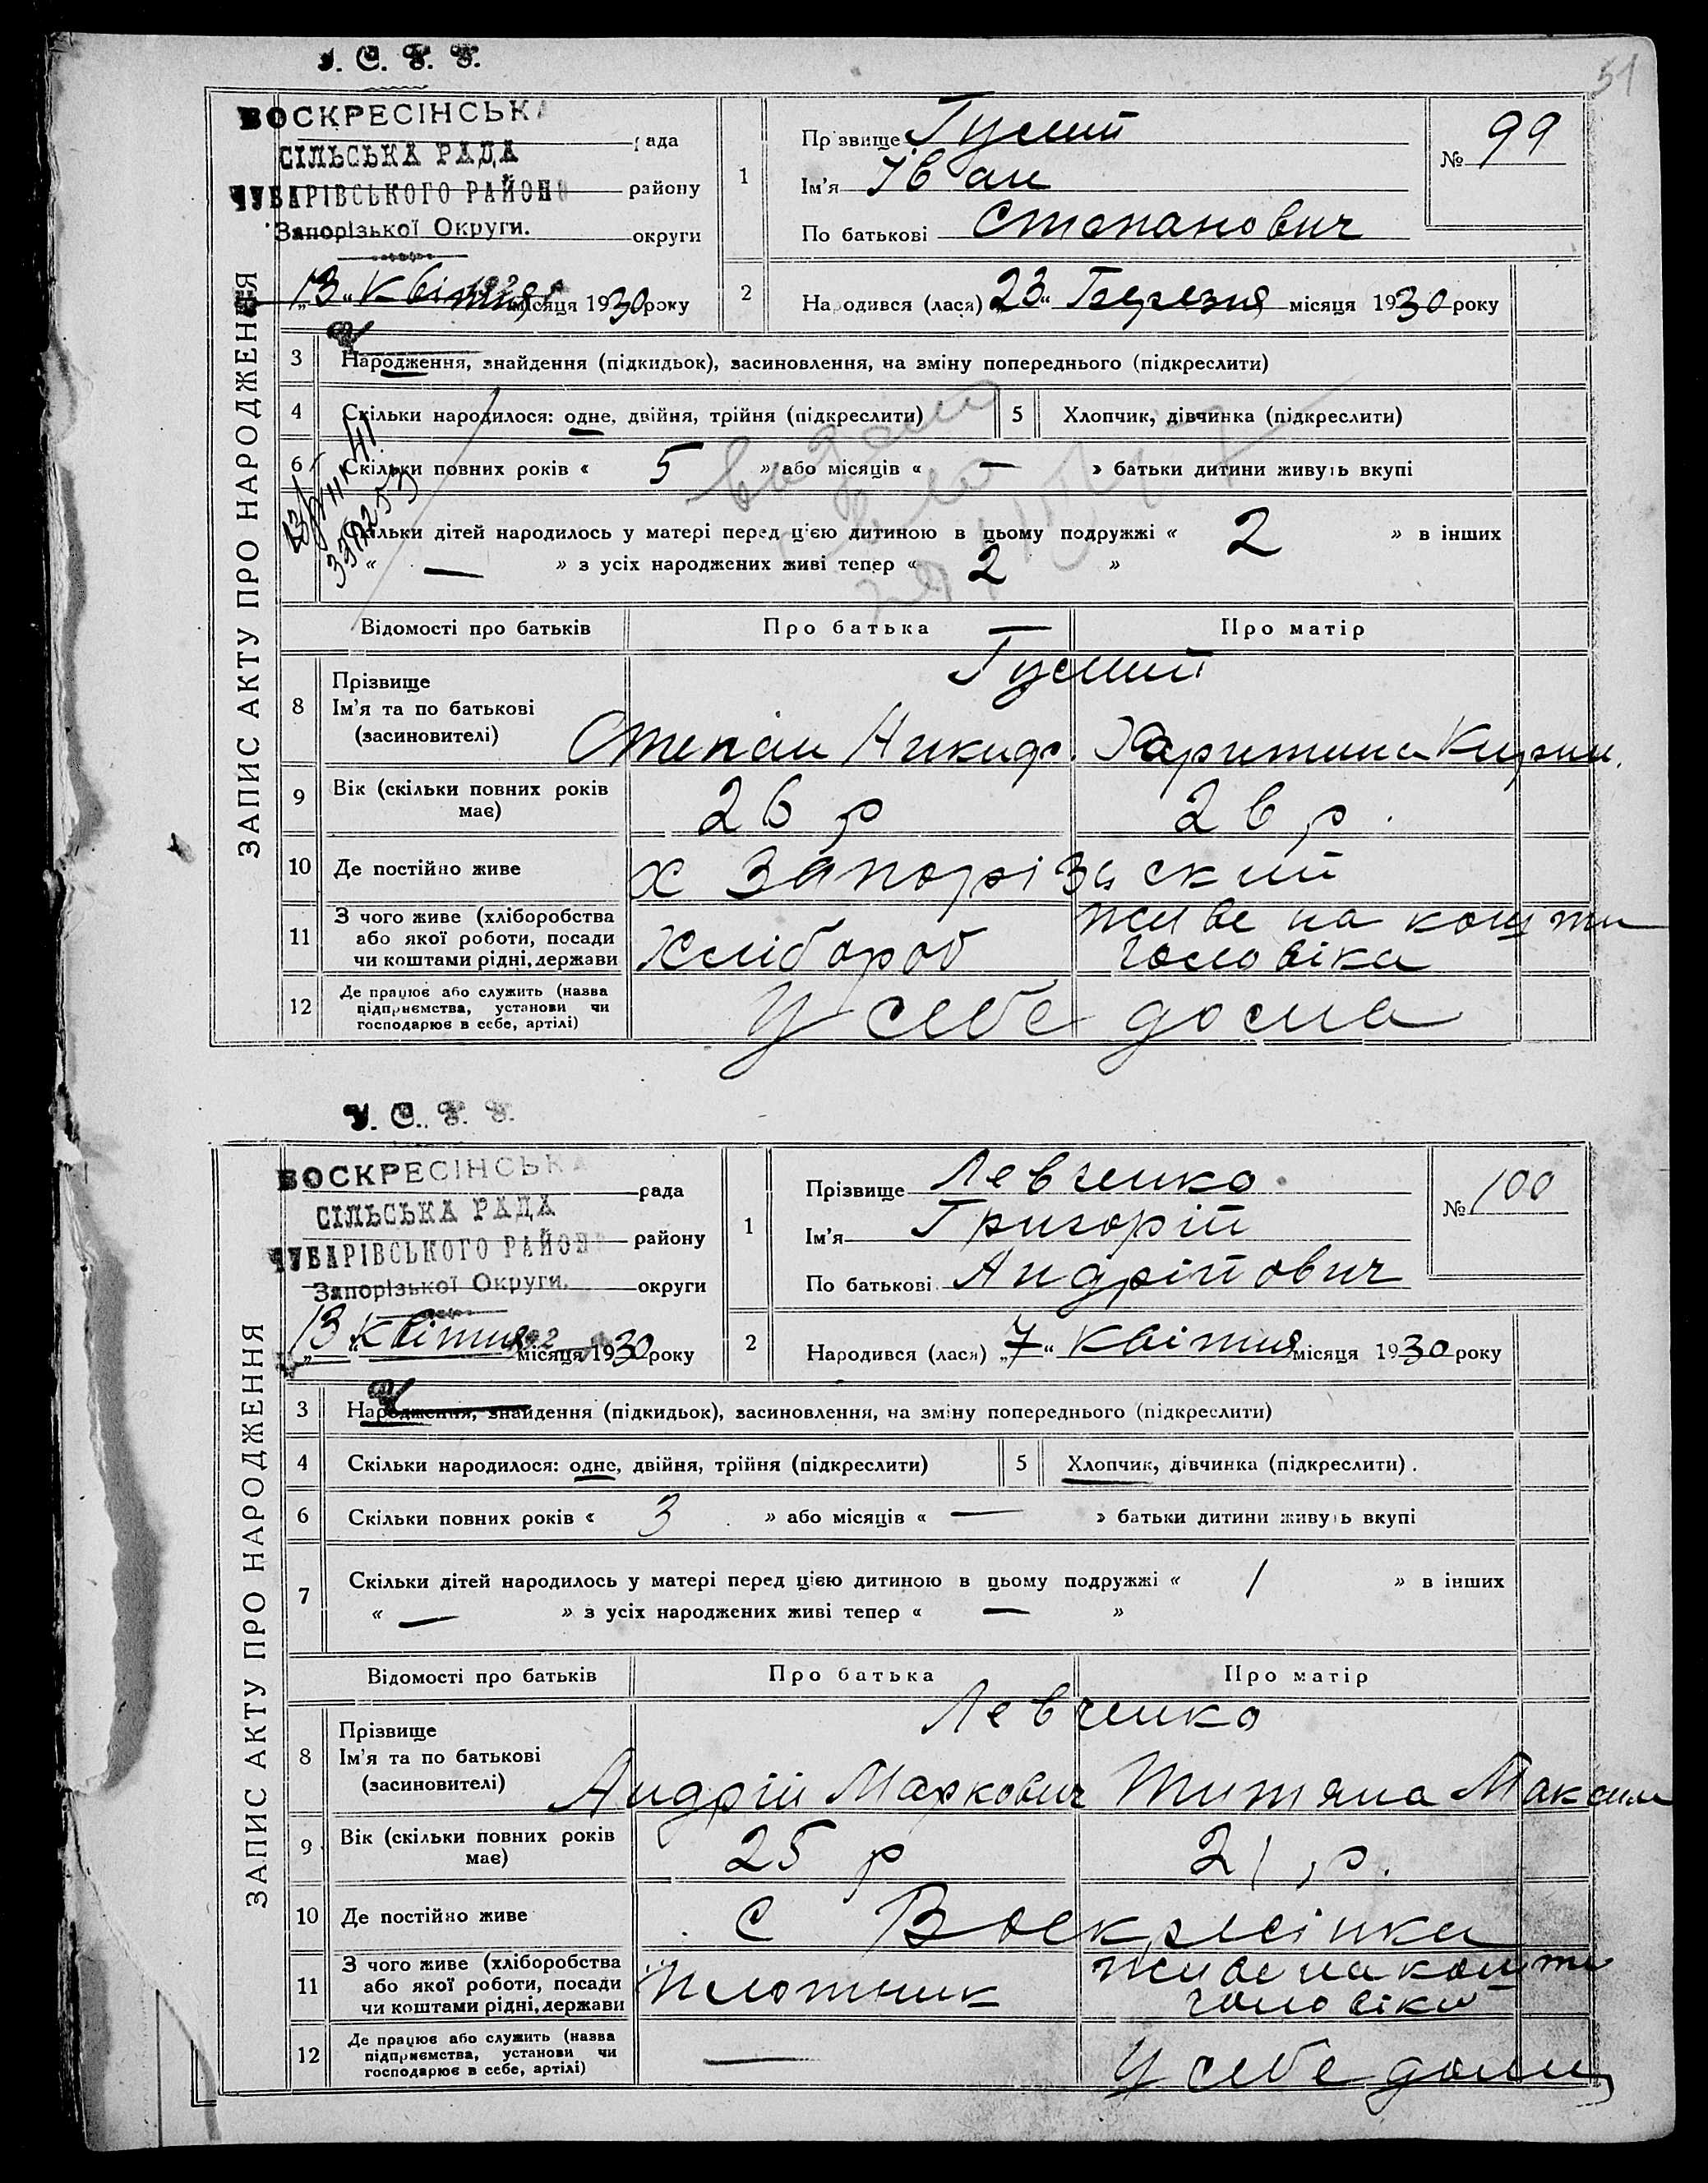 51
У. С. Р. Р.
ВОСКРЕСІНСЬКА рада
СІЛЬСЬКА РАДА
ЧУБАРІВСЬКОГО РАЙОНУ району
Запорізької Округи. округи
„13“ Квітня місяця 1930 року
ЗАПИС АКТУ ПРО НАРОДЖЕННЯ
1 Прізвище Гусий
Ім'я Іван
По батькові Степанович
№ 99
2 Народився (лася) „23“ Березня місяця 1930 року
3 Народження, знайдення (підкидьок), засиновлення, на зміну попереднього (підкреслити)
4 Скільки народилося: одне, двійня, трійня (підкреслити) 5 Хлопчик, дівчинка (підкреслити)
6 Скільки повних років « 5 » або місяців « — » батьки дитини живуть вкупі
Скільки дітей народилось у матері перед цією дитиною в цьому подружжі « 2 » в інших
« — » з усіх народжених живі тепер « 2 »
Відомості про батьків Про батька Про матір
8 Прізвище Гусий
Ім'я та по батькові
(засиновителі) Степан Никиф. Харитина Кирил.
9 Вік (скільки повних років має) 26 р 26 р.
10 Де постійно живе х Запорізський
11 З чого живе (хліборобства
або якої роботи, посади
чи коштами рідні, держави Хлібороб живе на кошти чоловіка
12 Де працює або служить (назва
підприємства, установи чи
господарює в себе, артілі) У себе дома
У. С. Р. Р.
ВОСКРЕСІНСЬКА рада
СІЛЬСЬКА РАДА
ЧУБАРІВСЬКОГО РАЙОНУ району
Запорізької Округи. округи
„13“ Квітня місяця 1930 року
ЗАПИС АКТУ ПРО НАРОДЖЕННЯ
1 Прізвище Левченко
Ім'я Григорій
По батькові Андрійович
№ 100
2 Народився (лася) „7“ Квітня місяця 1930 року
3 Народження, знайдення (підкидьок), засиновлення, на зміну попереднього (підкреслити)
4 Скільки народилося: одне, двійня, трійня (підкреслити) 5 Хлопчик, дівчинка (підкреслити).
6 Скільки повних років « 3 » або місяців « — » батьки дитини живуть вкупі
7 Скільки дітей народилось у матері перед цією дитиною в цьому подружжі « 1 » в інших
« — » з усіх народжених живі тепер « — »
Відомості про батьків Про батька Про матір
8 Прізвище Левченко
Ім'я та по батькові
(засиновителі) Андрій Маркович Титяна Максим
9 Вік (скільки повних років має) 25 р 21 р.
10 Де постійно живе с Воскресінка
11 З чого живе (хліборобства
або якої роботи, посади
чи коштами рідні, держави Плотник живе на кошти чоловіка
12 Де працює або служить (назва
підприємства, установи чи
господарює в себе, артілі) — У себе дома